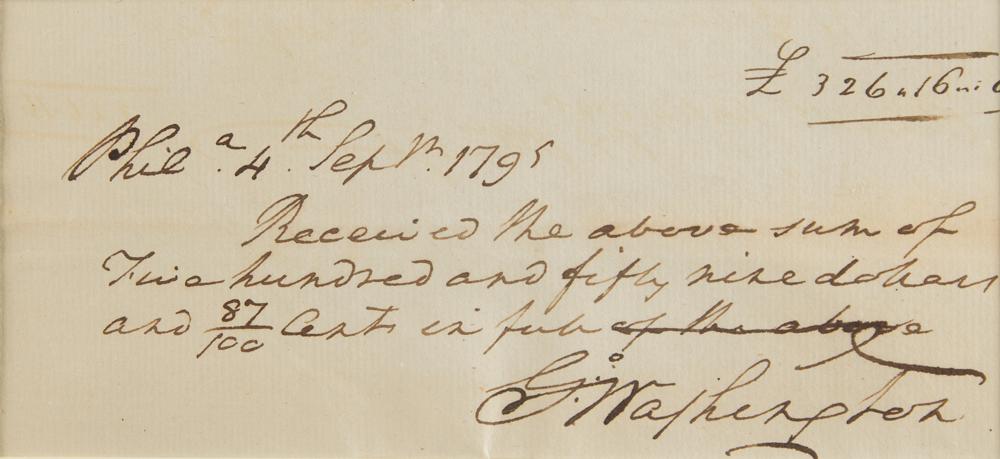 £ 326 " 16 "
Phil.ª 4.th Sepr. 1795
Received the above sum of
Five hundred and fifty nine dollars
and 87/100 Cents in full of the above
G:º Washington